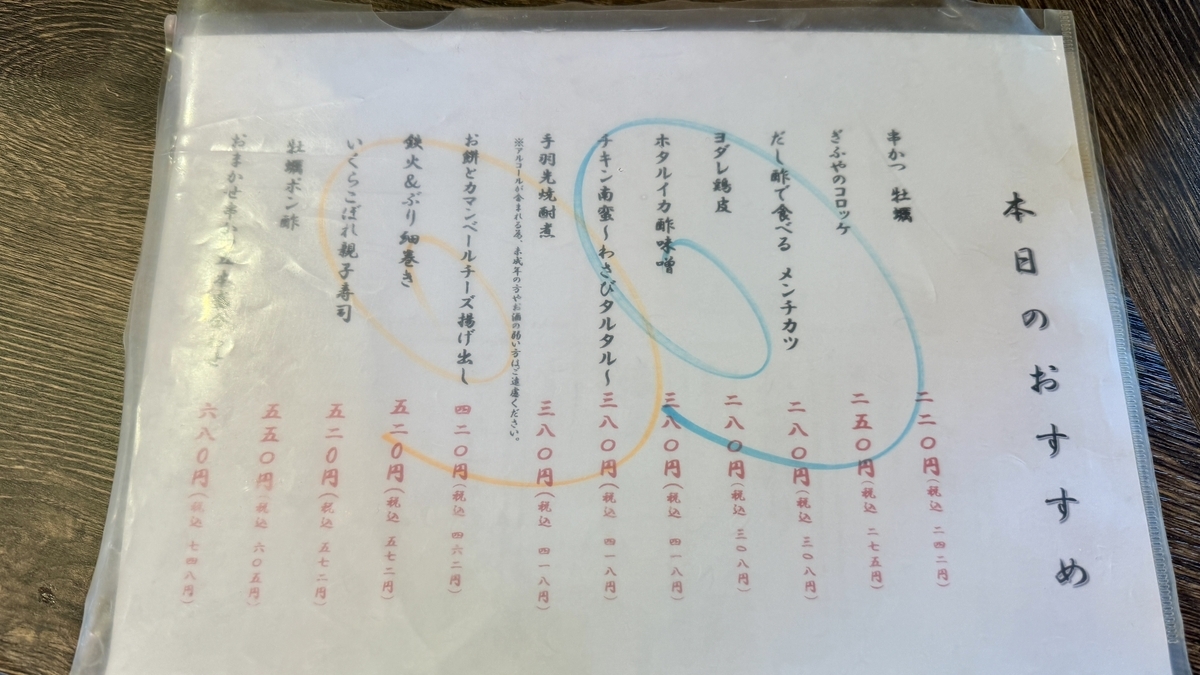 本日のおすすめ
串かつ 牡蠣 二二〇円(税込 二四二円)
ぎふやのコロッケ 二五〇円(税込 二七五円)
だし酢で食べる メンチカツ 二八〇円(税込 三〇八円)
ヨダレ鶏皮 二八〇円(税込 三〇八円)
ホタルイカ酢味噌 三八〇円(税込 四一八円)
チキン南蛮〜わさびタルタル〜 三八〇円(税込 四一八円)
手羽先焼酎煮 三八〇円(税込 四一八円)
※アルコールが含まれる為、未成年の方やお酒の弱い方はご遠慮ください。
お餅とカマンベールチーズ揚げ出し 四二〇円(税込 四六二円)
鉄火&ぶり細巻き 五二〇円(税込 五七二円)
いくらこぼれ親子寿司 五二〇円(税込 五七二円)
牡蠣ポン酢 五五〇円(税込 六〇五円)
おまかせ串 六八〇円(税込 七四八円)